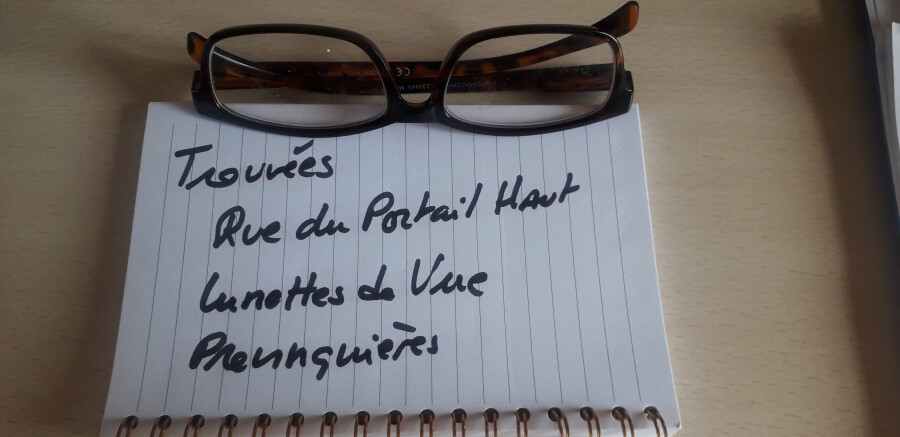 Trouvées
Rue du Portail Haut
Lunettes de Vue